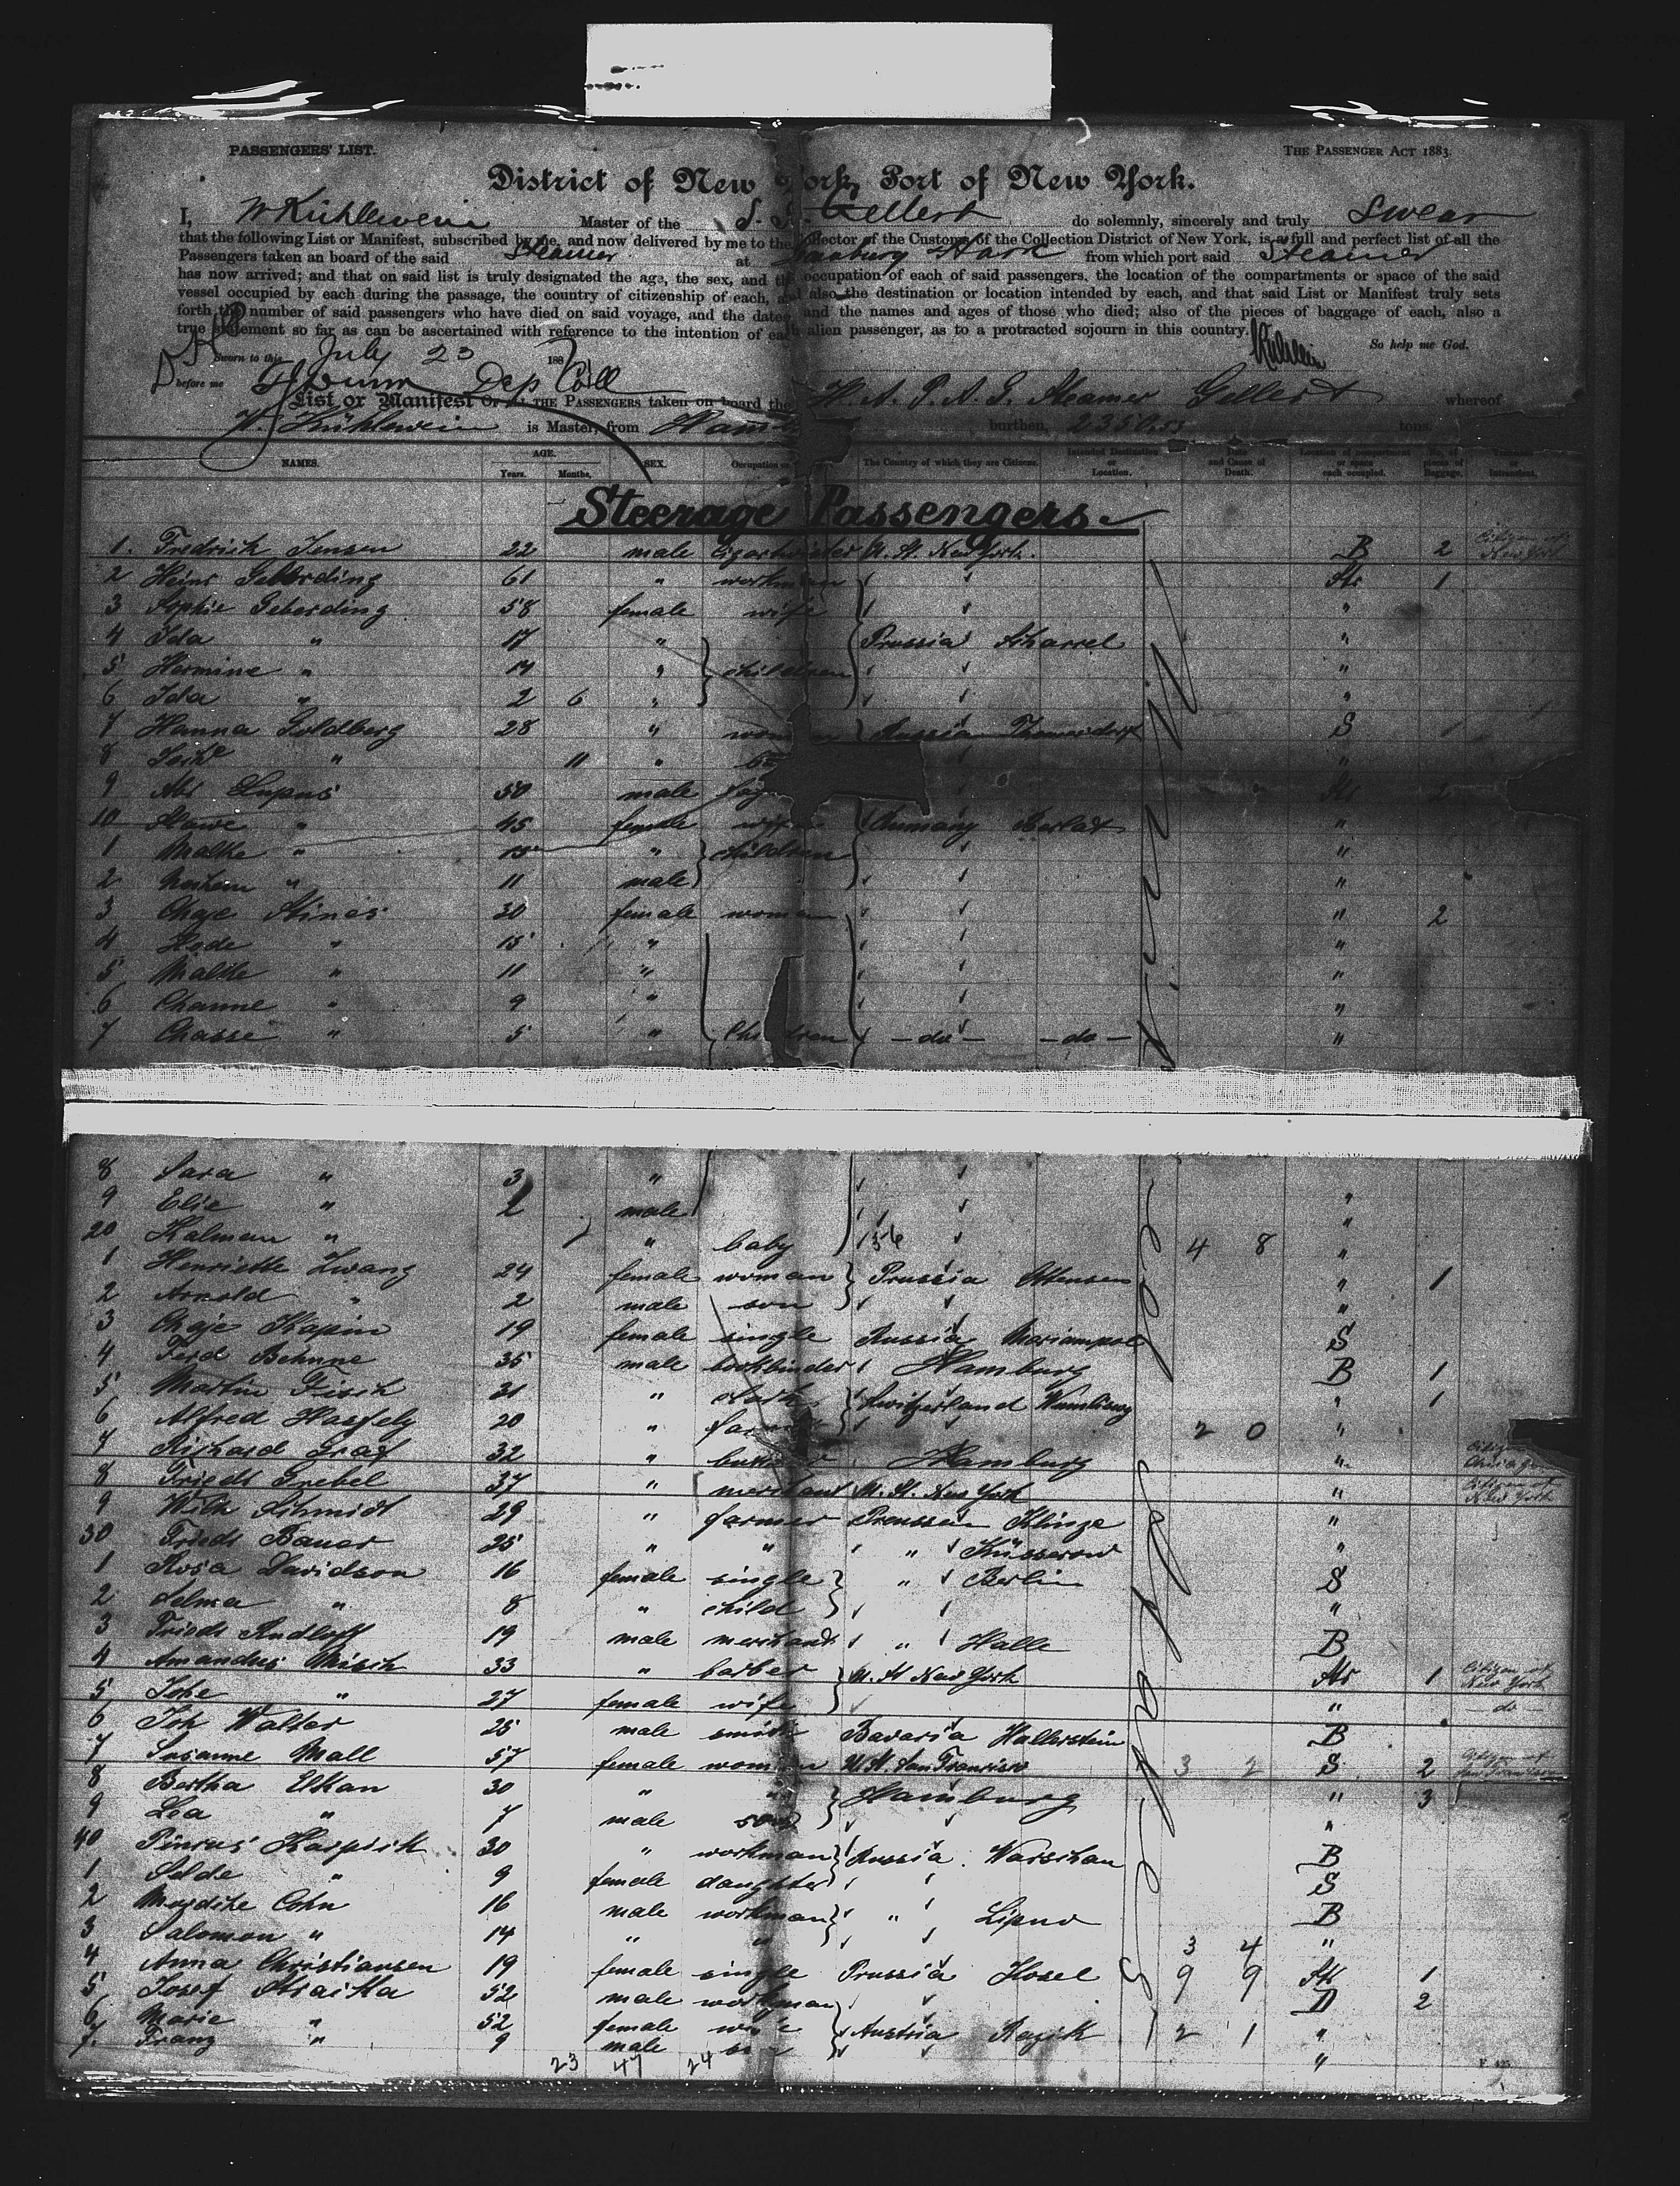 PASSENGERS' LIST. THE PASSENGER ACT 1883.
District of New York, Port of New York.
I, W Kühlewein Master of the S. S. Gellert do solemnly, sincerely and truly swear
that the following List or Manifest, subscribed by me, and now delivered by me to the Collector of the Customs of the Collection District of New York, is a full and perfect list of all the
Passengers taken on board of the said Steamer at Hamburg Havre from which port said Steamer
has now arrived; and that on said list is truly designated the age, the sex, and the occupation of each of said passengers, the location of the compartments or space of the said
vessel occupied by each during the passage, the country of citizenship of each, and also the destination or location intended by each, and that said List or Manifest truly sets
forth the number of said passengers who have died on said voyage, and the dates and the names and ages of those who died; also of the pieces of baggage of each, also a
true statement so far as can be ascertained with reference to the intention of each alien passenger, as to a protracted sojourn in this country.
Sworn to this July 23 1887 So help me God.
before me Dep Coll
List or Manifest OF ALL THE PASSENGERS taken on board the H. A. P. A. G. Steamer Gellert whereof
W. Kühlewein is Master, from Hamburg burthen 2350.53 tons.
NAMES. AGE. Years. Months. SEX. Occupation The Country of which they are Citizens. Intended Destination or Location. Date and Cause of Death. Location of compartment or space each occupied. No. of pieces of Baggage.
Steerage Passengers.
1. Fredrick Jensen 22 male U. St. New York. B 2 Citizen of New York
2 Heinr Geberding 61 " workman Str 1
3 Sophie Geberding 58 female wife "
4 Ida " 17 " Prussia Scharrel "
5 Hermine " 14 " children "
6 Ida " 2 6 " "
7 Hanna Goldberg 28 " woman Russia S
8 " 11 " "
9 Abr Lupus 50 male Str 2
10 " 45 female wife Rumany Berlat "
1 Malke " 15 " children "
2 " 11 male "
3 Chaje 30 female woman " 2
4 Hode " 15 " "
5 Malke " 11 " "
6 Channe " 9 " "
7 Chasse " 5 " Children - do - - do - "
8 Sara " 3 " "
9 Elie " 2 male "
20 Kalman " " baby 4 8 "
1 Henriette Zwang 24 female woman Prussia Ottensen " 1
2 Arnold " 2 male son "
3 Chaje Kapin 19 female single Russia Mariampol S
4 Ferd Behnne 35 male bookbinder Hamburg B 1
5 Martin Fisch 31 " Switzerland " 1
6 Alfred Hassfely 20 " farmer 2 0 "
7 Richard Graf 32 " Hamburg " Citizen Chicago
8 Friedr Grebel 37 " merchant U. St. New York " Citizen of New York
9 Wilh Schmidt 29 " farmer Preussen Klinze "
30 Friedr Bauer 25 " " " Küsserow "
1 Rosa Davidson 16 female single " Berlin S
2 Selma " 8 " child "
3 Friedr 19 male merchant " Halle B
4 Amandus Misch 33 " barber U. St New York Str 1 Citizen of New York
5 Johe " 27 female wife " - do -
6 Joh Walter 25 male smith Bavaria Hallerstein B
7 Susanne Mall 57 female woman U. St. San Francisco 3 2 S 2 Citizen of San Francisco
8 Bertha Elkan 30 " " Hamburg " 3
9 Lea " 7 male son "
40 Pincus Kaspsik 30 " workman Russia Warschau B
1 Selde " 9 female daughter S
2 Mordche Cohn 16 male workman " Lipno B
3 Salomon " 14 " " 3 4 "
4 Anna Christiansen 19 female single Prussia Hosel 9 9 Str 1
5 Josef 52 male workman D 2
6 Marie " 52 female wife Austria 1 2 1 "
7. Franz " 9 male son "
23 47 24